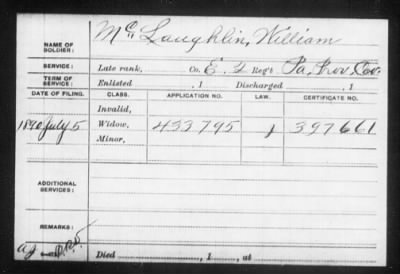 NAME OF SOLDIER: McLaughlin, William
SERVICE: Late rank, Co. E. 2 Reg't Pa. Prov. Cav.
TERM OF SERVICE: Enlisted , 1 Discharged , 1
DATE OF FILING. CLASS. APPLICATION NO. LAW. CERTIFICATE NO.
Invalid,
1890 July 5 Widow, 433795 J 397661
Minor,
ADDITIONAL SERVICES:
REMARKS:
Died , 1 , at